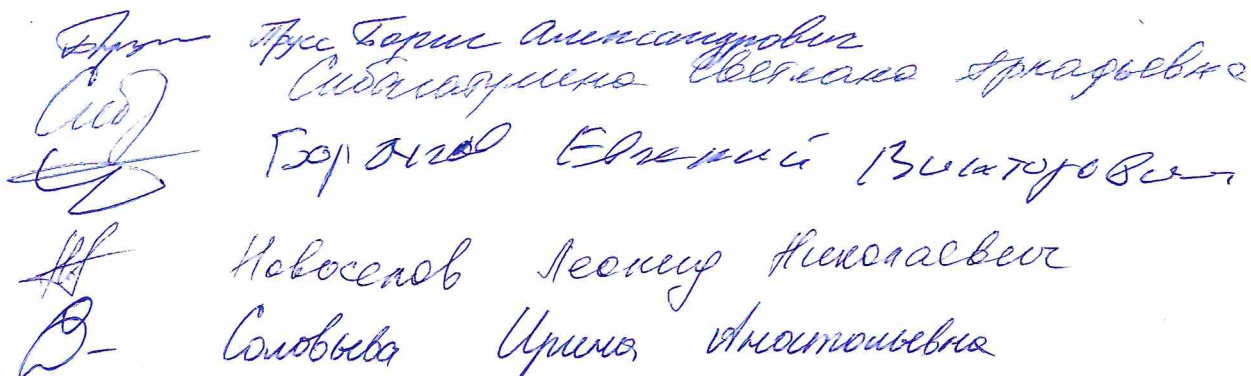 Прусс Борис Александрович
Сибагатулина Светлана Аркадьевна
Евгений Викторович
Новоселов Леонид Николаевич
Соловьева Ирина Анатольевна